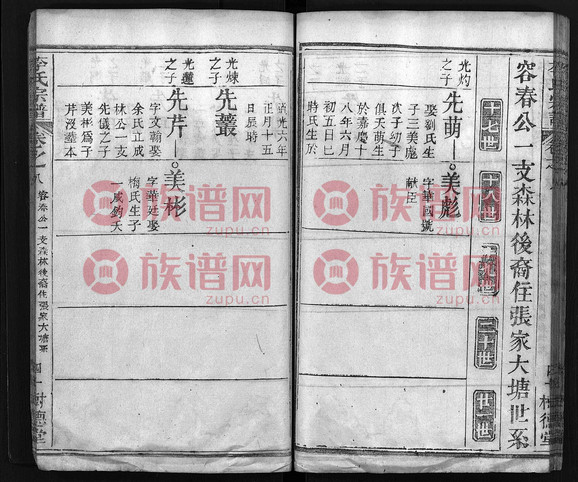 容春公一支森林後裔住張家大塘世系
十七世
十八世
十九世
二十世
廿一世
光灼之子
先萌
娶劉氏生
子三美彪
次子幼子
俱夭萌生
於嘉慶十
八年六月
初五日巳
時氏生於
美彪
字華國號
獻臣
光煉之子
先叢
道光六年
正月十五
日辰時
光蓮之子
先芹
字文翰娶
余氏立成
林公一支
先儀之子
美彬為子
芹沒塟本
美彬
字華廷娶
梅氏生子
一成鈞夭
李氏宗譜
卷之八
容春公一支森林後裔住張家大塘世系
四十
樹德堂
族谱网
zupu.cn